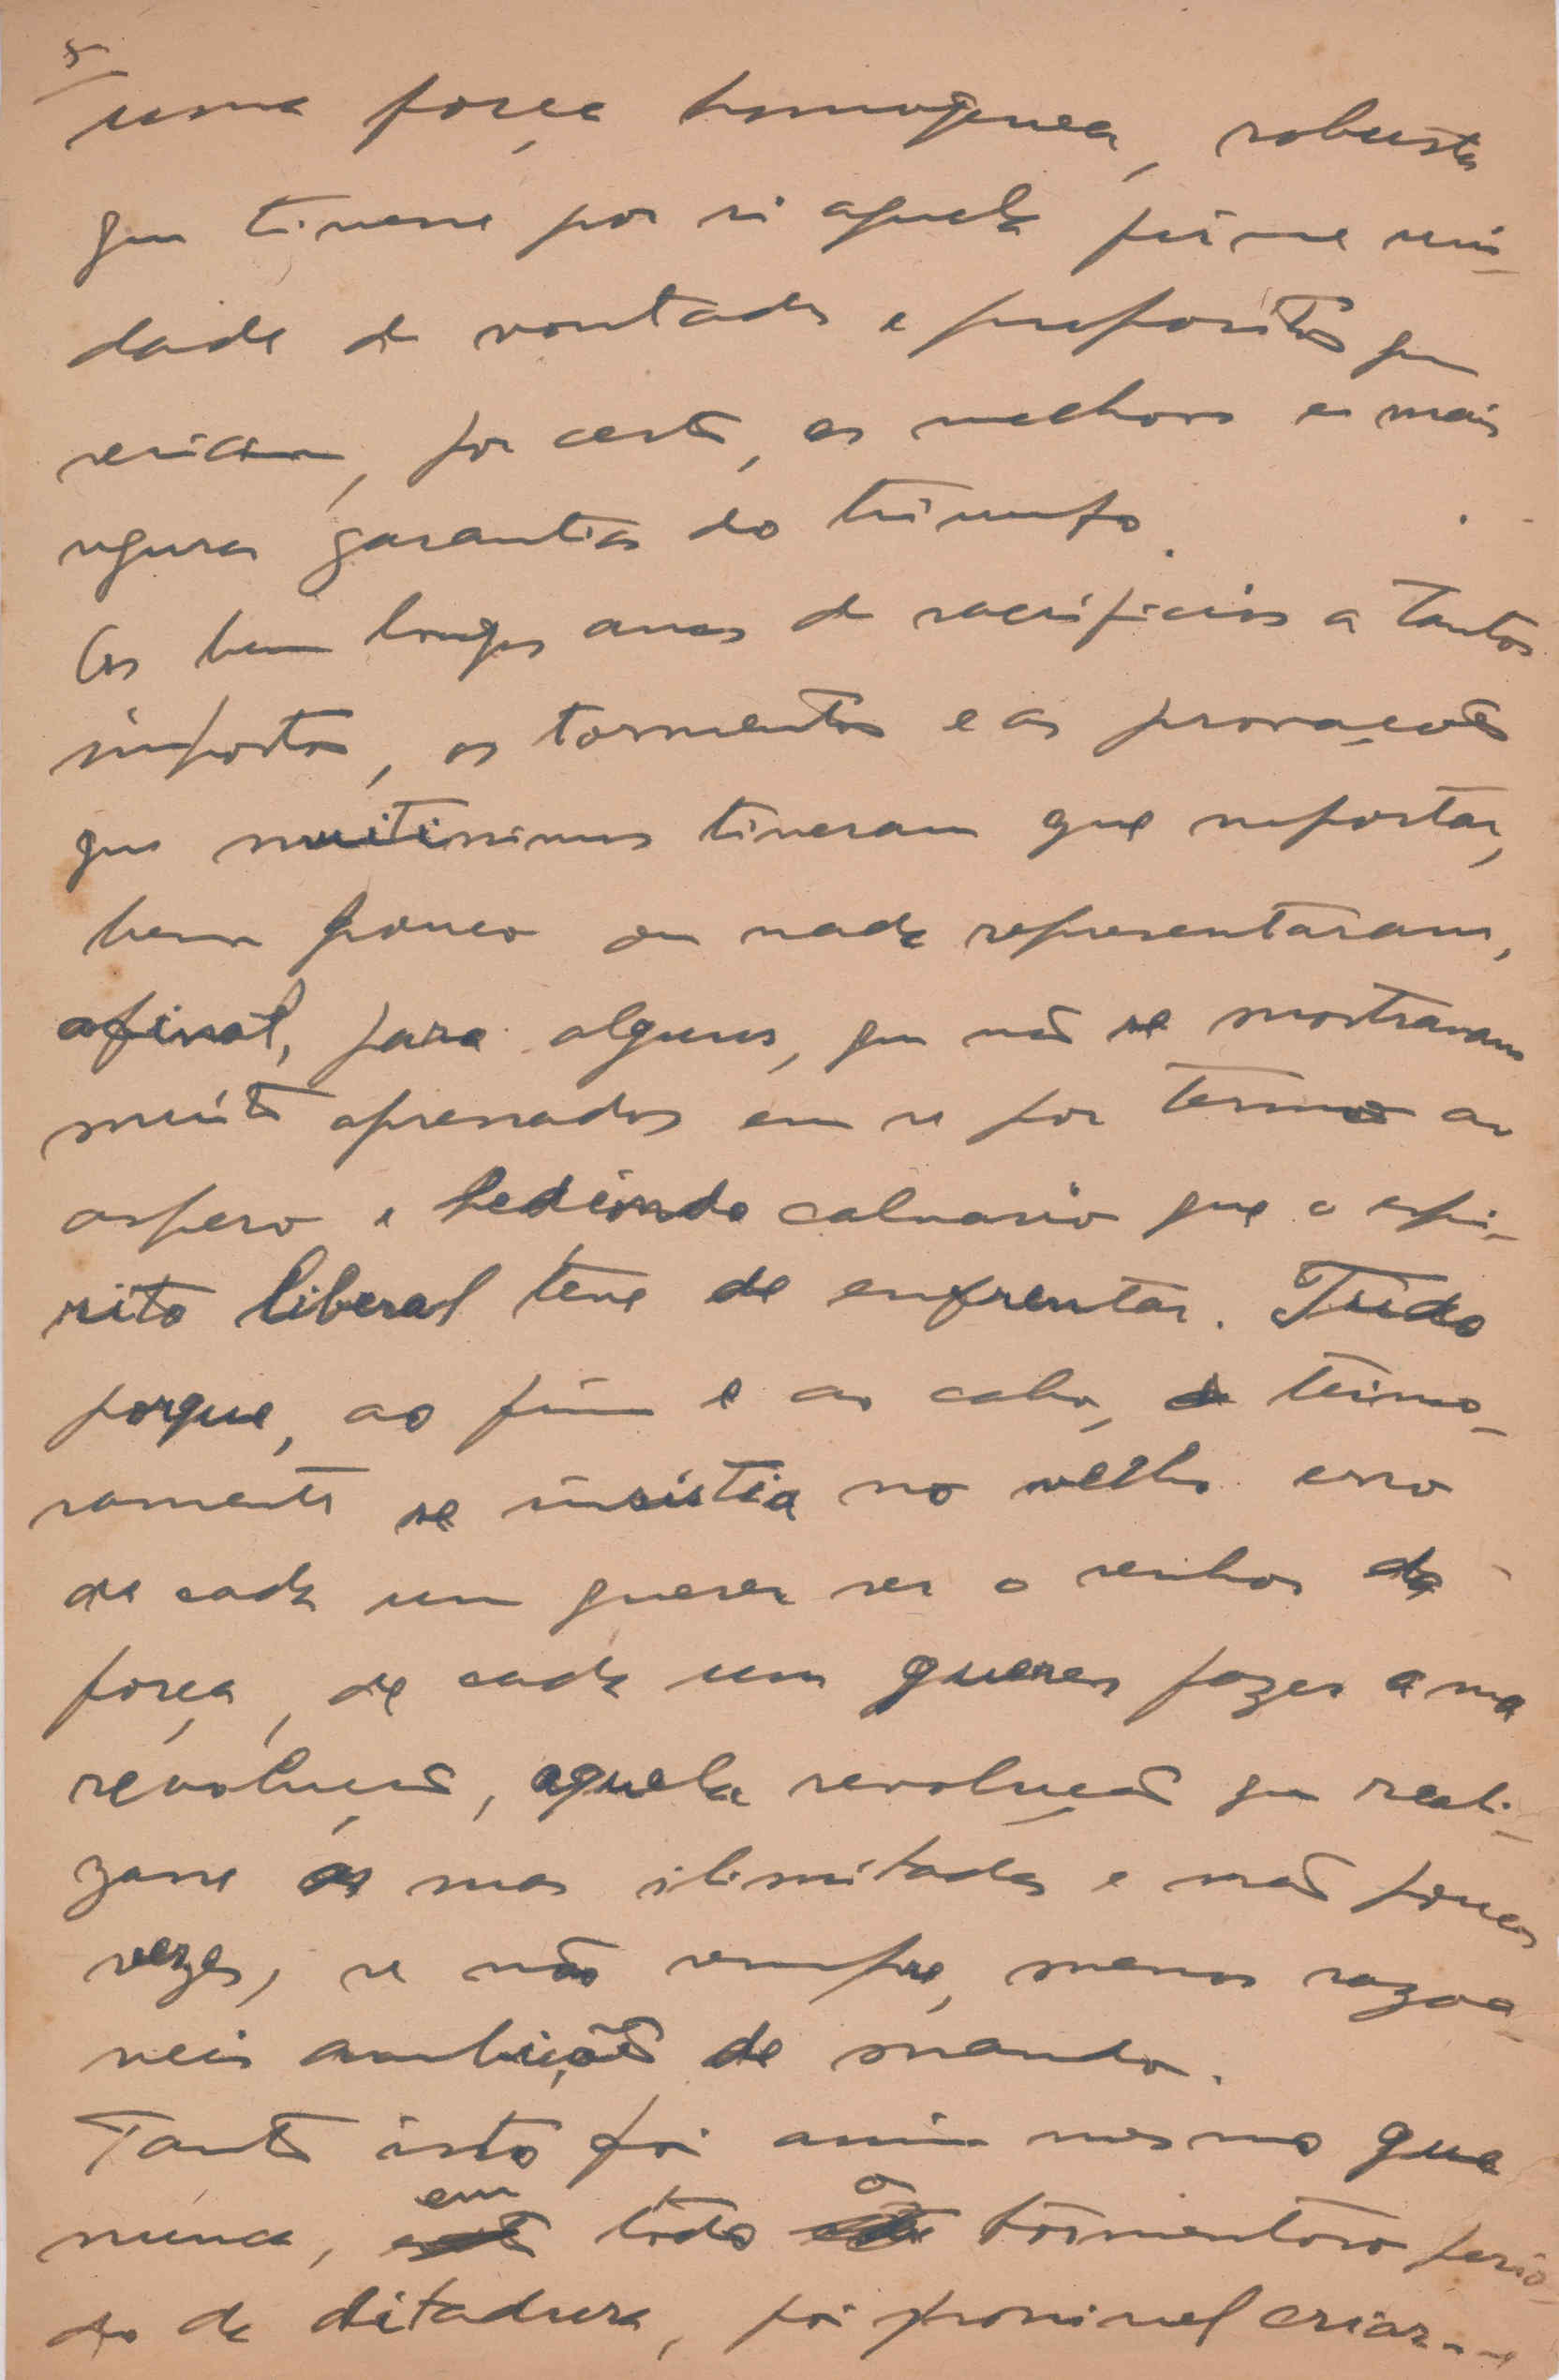 5
uma força homogenea, robusta
que tivesse por si aquela firme uni-
dade de vontades e propositos que
seriam, por certo, as melhores e mais
seguras garantias do triunfo.
Os bem longos anos de sacrificios a tantos
impostos, os tormentos e as provações
que muitissimos tiveram que suportar,
bem pouco ou nada representaram,
afinal, para alguns, que não se mostravam
muito apressados em se por termo ao
aspero e hediondo calvario que o espi-
rito liberal teve de enfrentar. Tudo
porque, ao fim e ao cabo, teimo-
samente se insistia no velho erro
de cada um querer ser o senhor da
força, de cada um querer fazer a sua
revolução, aquela revolução que reali-
zasse as suas ilimitadas e não poucas
vezes, se não sempre, menos razoa-
veis ambições de mando.
Tanto isto foi assim mesmo que
nunca, em todo o tormentoso perio-
do da ditadura, foi possivel criar-se